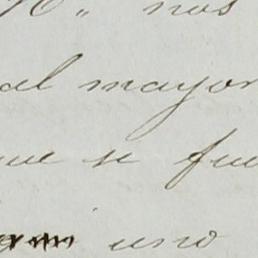 nos
al mayor
que se fue
uno